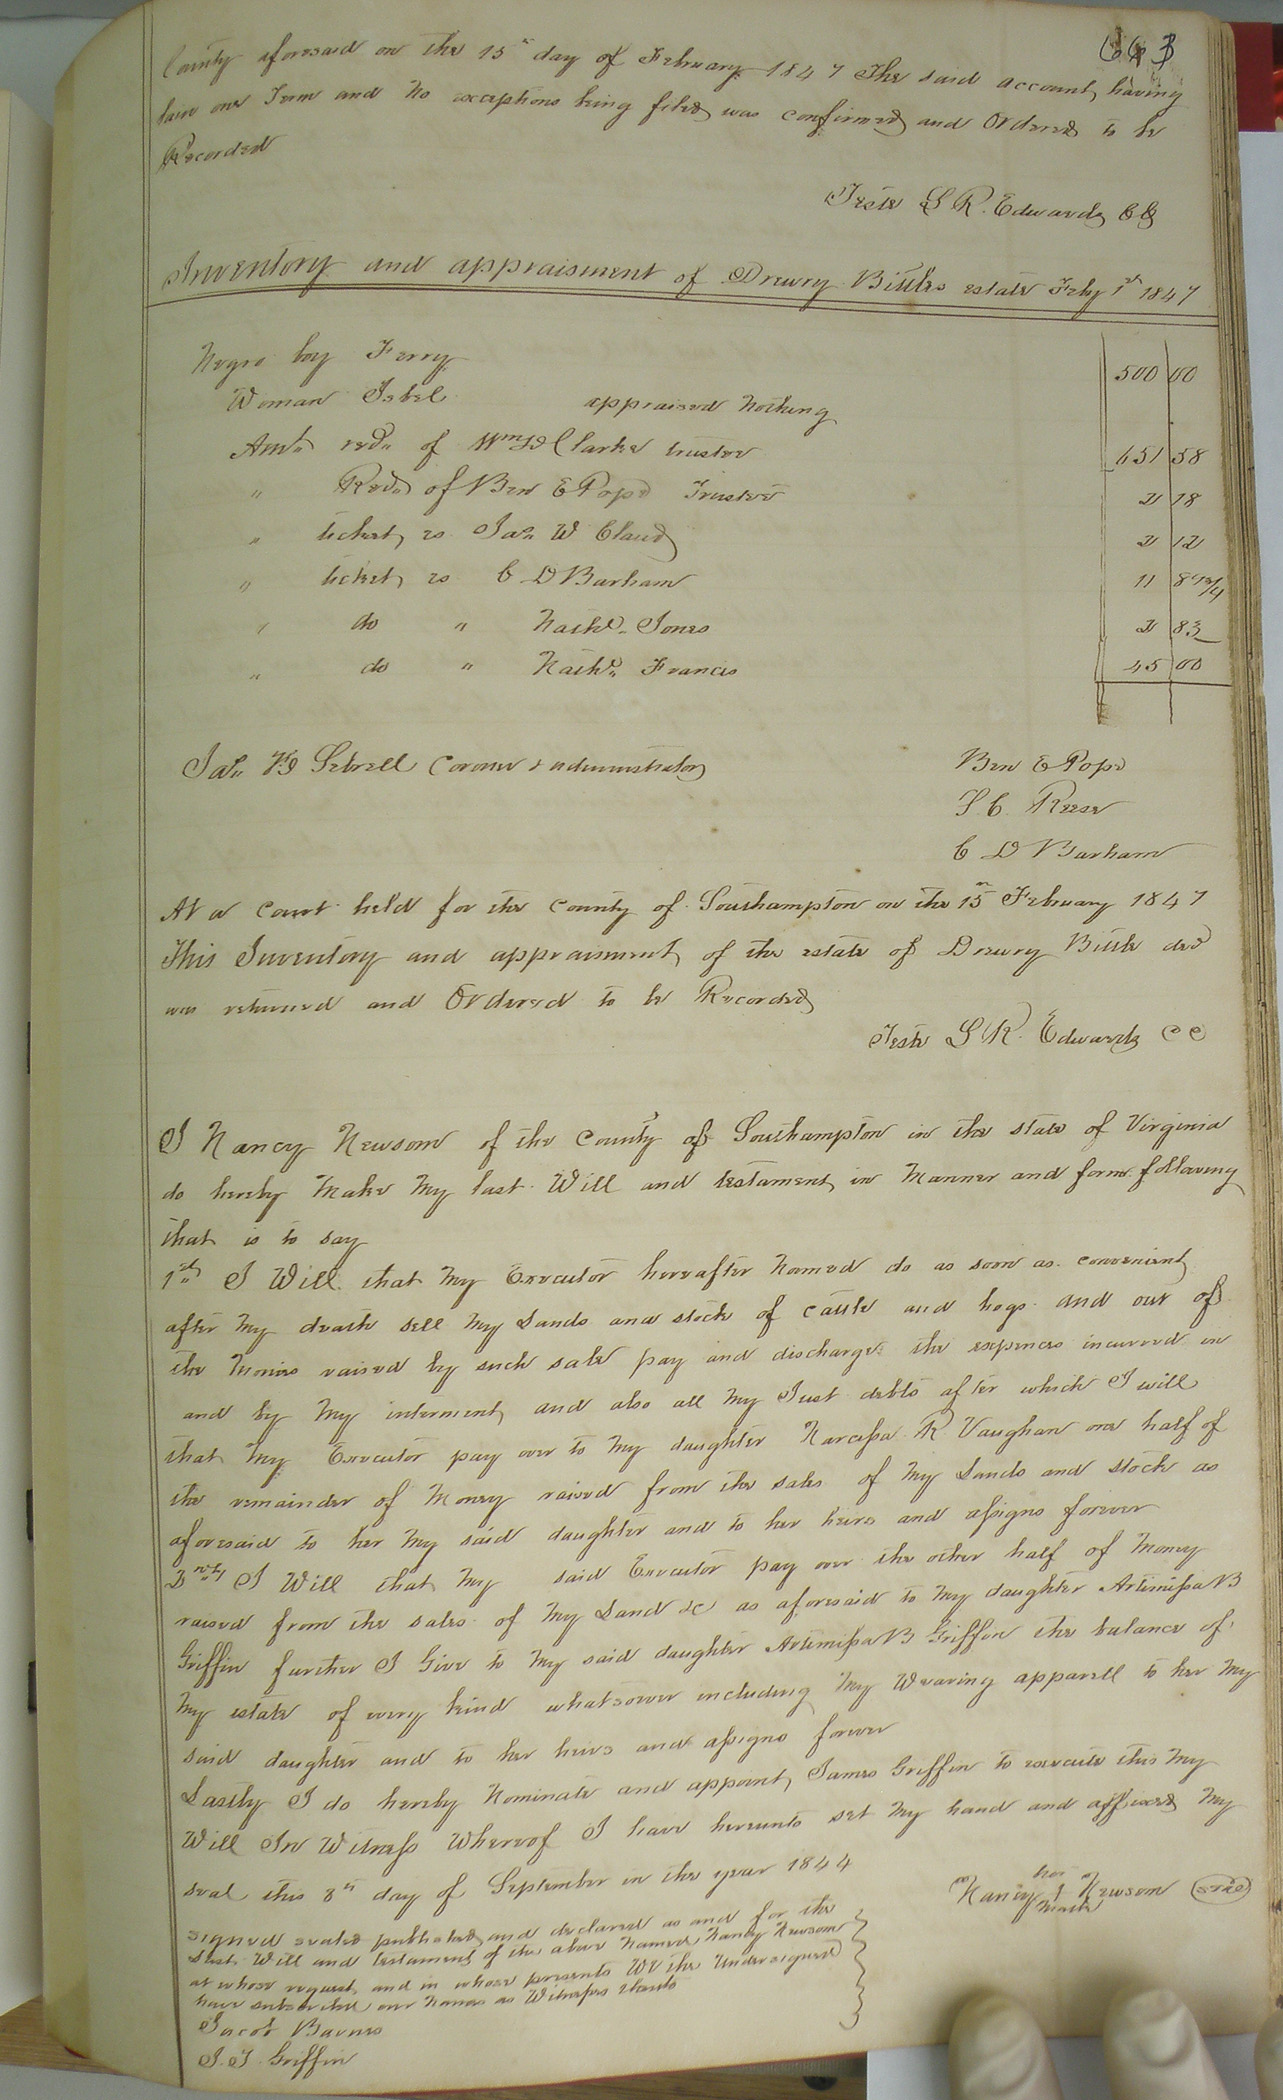 663
County aforesaid on the 15th day of February 1847 The said account having
lain one Term and No exceptions being filed was confirmed and Ordered to be
Recorded
Teste L R. Edwards CC
Inventory and appraisment of Drewry Bittles estate Feby 1st 1847
Negro boy Ferry 500 00
Woman Isbel appraised Nothing
Amt. recd. of Wm D Clarke trustee 651 58
" Recd. of Ben E Pope Trustee 2 18
" ticket vs Jas. W Claud 2 12
" ticket vs C D Barham 11 87 3/4
" do " Nathl. Jones 2 83
" do " Nathl. Francis 45 00
Jas. W Sebrell Coroner & administrator Ben E Pope
S C Reese
C D Barham
At a Court held for the County of Southampton on the 15th February 1847
This Inventory and appraisment of the estate of Drewry Bittle decd
was returned and Ordered to be Recorded
Teste L R. Edwards CC
I Nancy Newsom of the County of Southampton in the state of Virginia
do hereby Make My last Will and testament in Manner and form following
that is to say
1st I Will that My Executor hereafter Named do as soon as convenient
after My death sell My Lands and stock of cattle and hogs and out of
the Monies raised by such sale pay and discharge the expences incurred in
and by My interment and also all My Just debts after which I will
that My Executor pay over to My daughter Narcissa R Vaughan one half of
the remainder of Money raised from the sales of My Lands and stock as
aforesaid to her My said daughter and to her heirs and assigns forever
2ndly I Will that My said Executor pay over the other half of Money
raised from the sales of My Land &c as aforesaid to My daughter Artimissa B
Griffin further I Give to My said daughter Artimissa B Griffin the balance of
My estate of every kind whatsoever including My Wearing apparell to her My
said daughter and to her heirs and assigns forever
Lastly I do hereby Nominate and appoint James Griffin to execute this My
Will In Witness Whereof I have hereunto set My hand and affixed My
seal this 8th day of September in the year 1844
her
Nancy + Newsom (seal)
mark
signed sealed published and declared as and for the
last Will and testament of the above Named Nancy Newsom
at whose request and in whose presents We the Undersigned
have subscribed our Names as Witnesses thereto
Jacob Barnes
J. T. Griffin